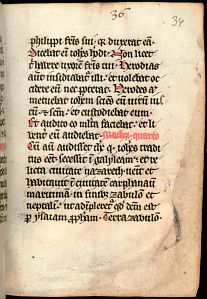 36 34
philippi fr̄is sui. q̇ duxerat eā.
Dicebat eī ioh̄s h̄odi. Non licet
t̄ habere uxorē fr̄is tui. Herodias
aut̄ insidiabat̄ illi. et volebat oc
cidere eū nec poterat. Herodes a
metuebat ioh̄em sciēs eū virū iu
stū & sc̄m. et custodiebat eum.
Et audito eo multa faciebat. et li
bent̄ eū audiebat.
Cū aut̄ audisset ih̄c q̇ ioh̄s tradi
tus eēt. secessit ī galyleam. et re
licta civitate nazareth. venit et
habitavit ī civitate capharnaū
maritima. in finib; zabulō et
neptali. ut adīpleret̄ qd̄ dc̄m est
p̄ ysaiam ꝓph̄am. Terra zabulō.